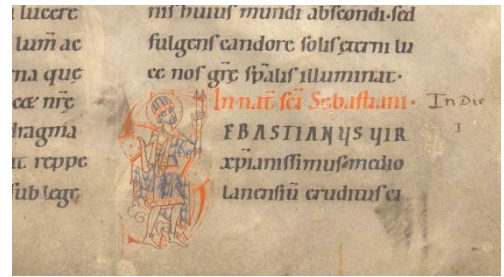 lucere
lum̄ ac
na que
nr̄e
dragma
reppe
ſub lege
niſ huiuſ mundi abſcondi·ſed
fulgenſ candore ſoliſ ęterni lu
ce noſ gr̄e ſp̄aliſ illuminat·
In nat̄ ſc̄i Sebaſtiani·
EBASTIANUS UIR
xp̄ianiſſimuſ·medio
lanenſiū erudituſ ci
In Die
1